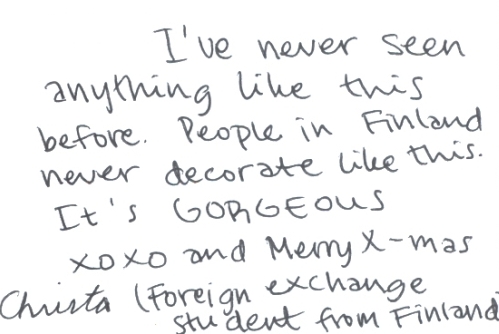 I've never seen
anything like this
before. People in Finland
never decorate like this.
It's GORGEOUS
XOXO and Merry X-mas
Christa (Foreign exchange
student from Finland